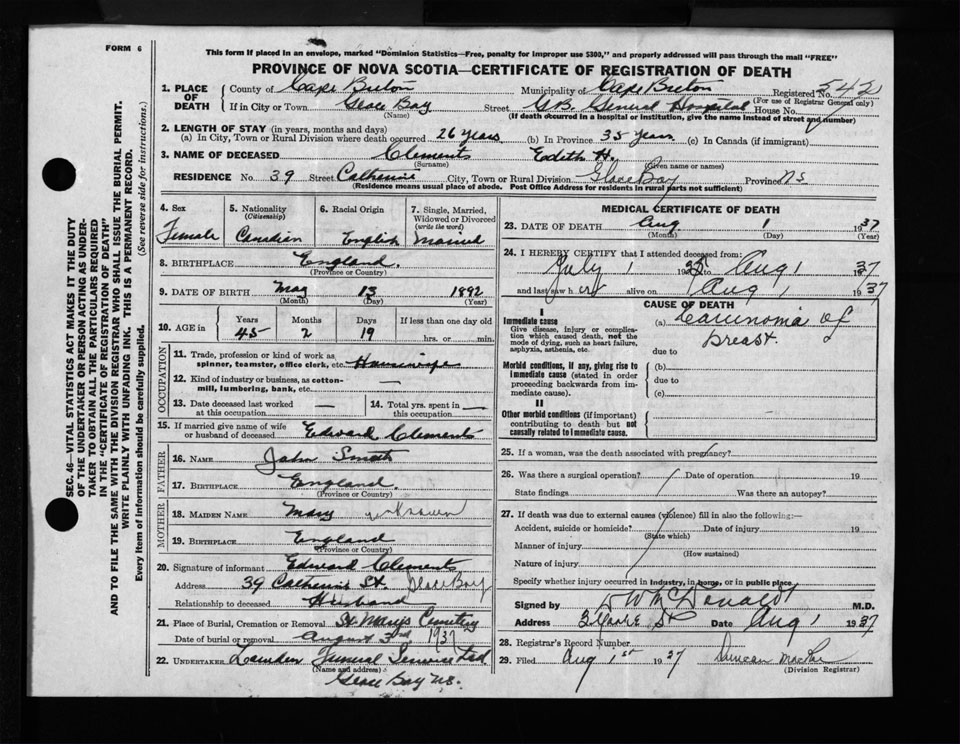 FORM 6
This form if placed in an envelope, marked "Dominion Statistics—Free, penalty for improper use $300," and properly addressed will pass through the mail "FREE"
PROVINCE OF NOVA SCOTIA—CERTIFICATE OF REGISTRATION OF DEATH
1. PLACE OF DEATH County of Cape Breton Municipality of Cape Breton Registered No. 542
(For use of Registrar General only)
If in City or Town Glace Bay Street G.B. General Hospital House No.
(Name) (If death occurred in a hospital or institution, give the name instead of street and number)
2. LENGTH OF STAY (in years, months and days)
(a) In City, Town or Rural Division where death occurred 26 years (b) In Province 35 years (c) In Canada (if immigrant)
3. NAME OF DECEASED Clements Eodith H.
(Surname) (Given name or names)
RESIDENCE No. 39 Street Catherine City, Town or Rural Division Glace Bay Province N S
(Residence means usual place of abode. Post Office Address for residents in rural parts not sufficient)
4. Sex 5. Nationality (Citizenship) 6. Racial Origin 7. Single, Married, Widowed or Divorced (write the word)
Female Canadian English Married
8. BIRTHPLACE England.
(Province or Country)
9. DATE OF BIRTH May 13 1892
(Month) (Day) (Year)
10. AGE in Years Months Days If less than one day old
45 2 19 hrs. or min.
OCCUPATION
11. Trade, profession or kind of work as spinner, teamster, office clerk, etc. Housewife
12. Kind of industry or business, as cotton-mill, lumbering, bank, etc. —
13. Date deceased last worked at this occupation — 14. Total yrs. spent in this occupation —
15. If married give name of wife or husband of deceased Edward Clements
FATHER
16. NAME John Smith
17. BIRTHPLACE England.
(Province or Country)
MOTHER
18. MAIDEN NAME Mary unknown
19. BIRTHPLACE England
(Province or Country)
20. Signature of informant Edward Clements
Address 39 Catherine St. Glace Bay
Relationship to deceased Husband
21. Place of Burial, Cremation or Removal St. Marys Cemetery
Date of burial or removal August 3rd 1937
22. UNDERTAKER Funeral Service Ltd
(Name and address)
Glace Bay N.S.
MEDICAL CERTIFICATE OF DEATH
23. DATE OF DEATH Aug 1 1937
(Month) (Day) (Year)
24. I HEREBY CERTIFY that I attended deceased from:
July 1 19 to Aug 1 1937
and last saw her alive on Aug 1 1937
CAUSE OF DEATH
I
Immediate cause (a) Carcinoma of
Give disease, injury or complication which caused death, not the mode of dying, such as heart failure, asphyxia, asthenia, etc. breast.
due to
Morbid conditions, if any, giving rise to immediate cause (stated in order proceeding backwards from immediate cause). (b)
due to
(c)
II
Other morbid conditions (if important) contributing to death but not causally related to immediate cause.
25. If a woman, was the death associated with pregnancy?
26. Was there a surgical operation? Date of operation 19
State findings Was there an autopsy?
27. If death was due to external causes (violence) fill in also the following:—
Accident, suicide or homicide? Date of injury 19
(State which)
Manner of injury
(How sustained)
Nature of injury
Specify whether injury occurred in industry, in home, or in public place.
Signed by D W McDonald M.D.
Address St Date Aug 1 1937
28. Registrar's Record Number
29. Filed Aug 1st 1937 Duncan MacRae
(Division Registrar)
SEC. 46—VITAL STATISTICS ACT MAKES IT THE DUTY
OF THE UNDERTAKER OR PERSON ACTING AS UNDER-
TAKER TO OBTAIN ALL THE PARTICULARS REQUIRED
IN THE "CERTIFICATE OF REGISTRATION OF DEATH"
AND TO FILE THE SAME WITH THE DIVISION REGISTRAR WHO SHALL ISSUE THE BURIAL PERMIT.
WRITE PLAINLY WITH UNFADING INK. THIS IS A PERMANENT RECORD.
Every item of information should be carefully supplied. (See reverse side for instructions.)